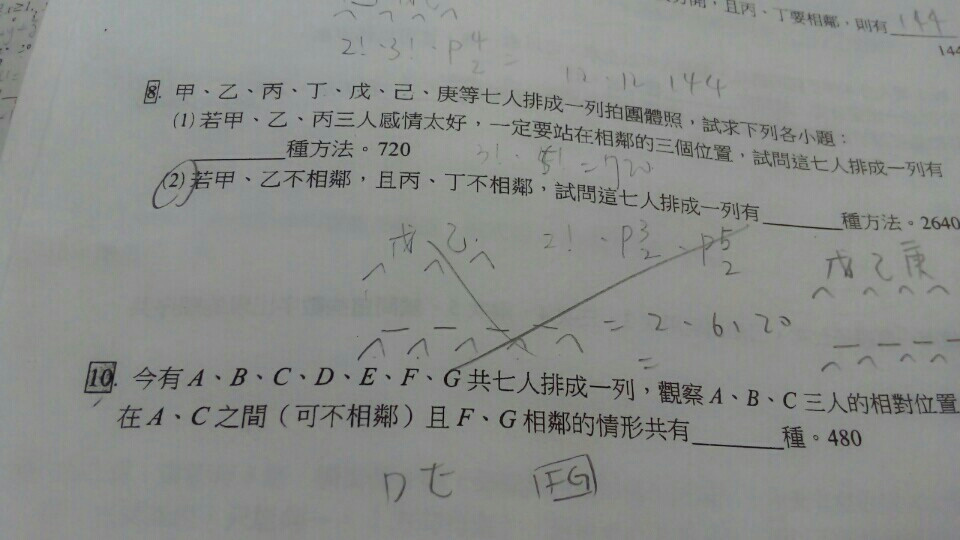 開，且丙、丁要相鄰，則有 144
144
2!·3!·P⁴₂ =
12·12 144
8. 甲、乙、丙、丁、戊、己、庚等七人排成一列拍團體照，試求下列各小題：
(1) 若甲、乙、丙三人感情太好，一定要站在相鄰的三個位置，試問這七人排成一列有
______種方法。720
3!·5! = 720
(2) 若甲、乙不相鄰，且丙、丁不相鄰，試問這七人排成一列有______種方法。2640
戊 乙 2!·P³₂·P⁵₂
戊 乙 庚
= 2·6·20
=
10. 今有 A、B、C、D、E、F、G 共七人排成一列，觀察 A、B、C 三人的相對位置
在 A、C 之間（可不相鄰）且 F、G 相鄰的情形共有______種。480
D E FG